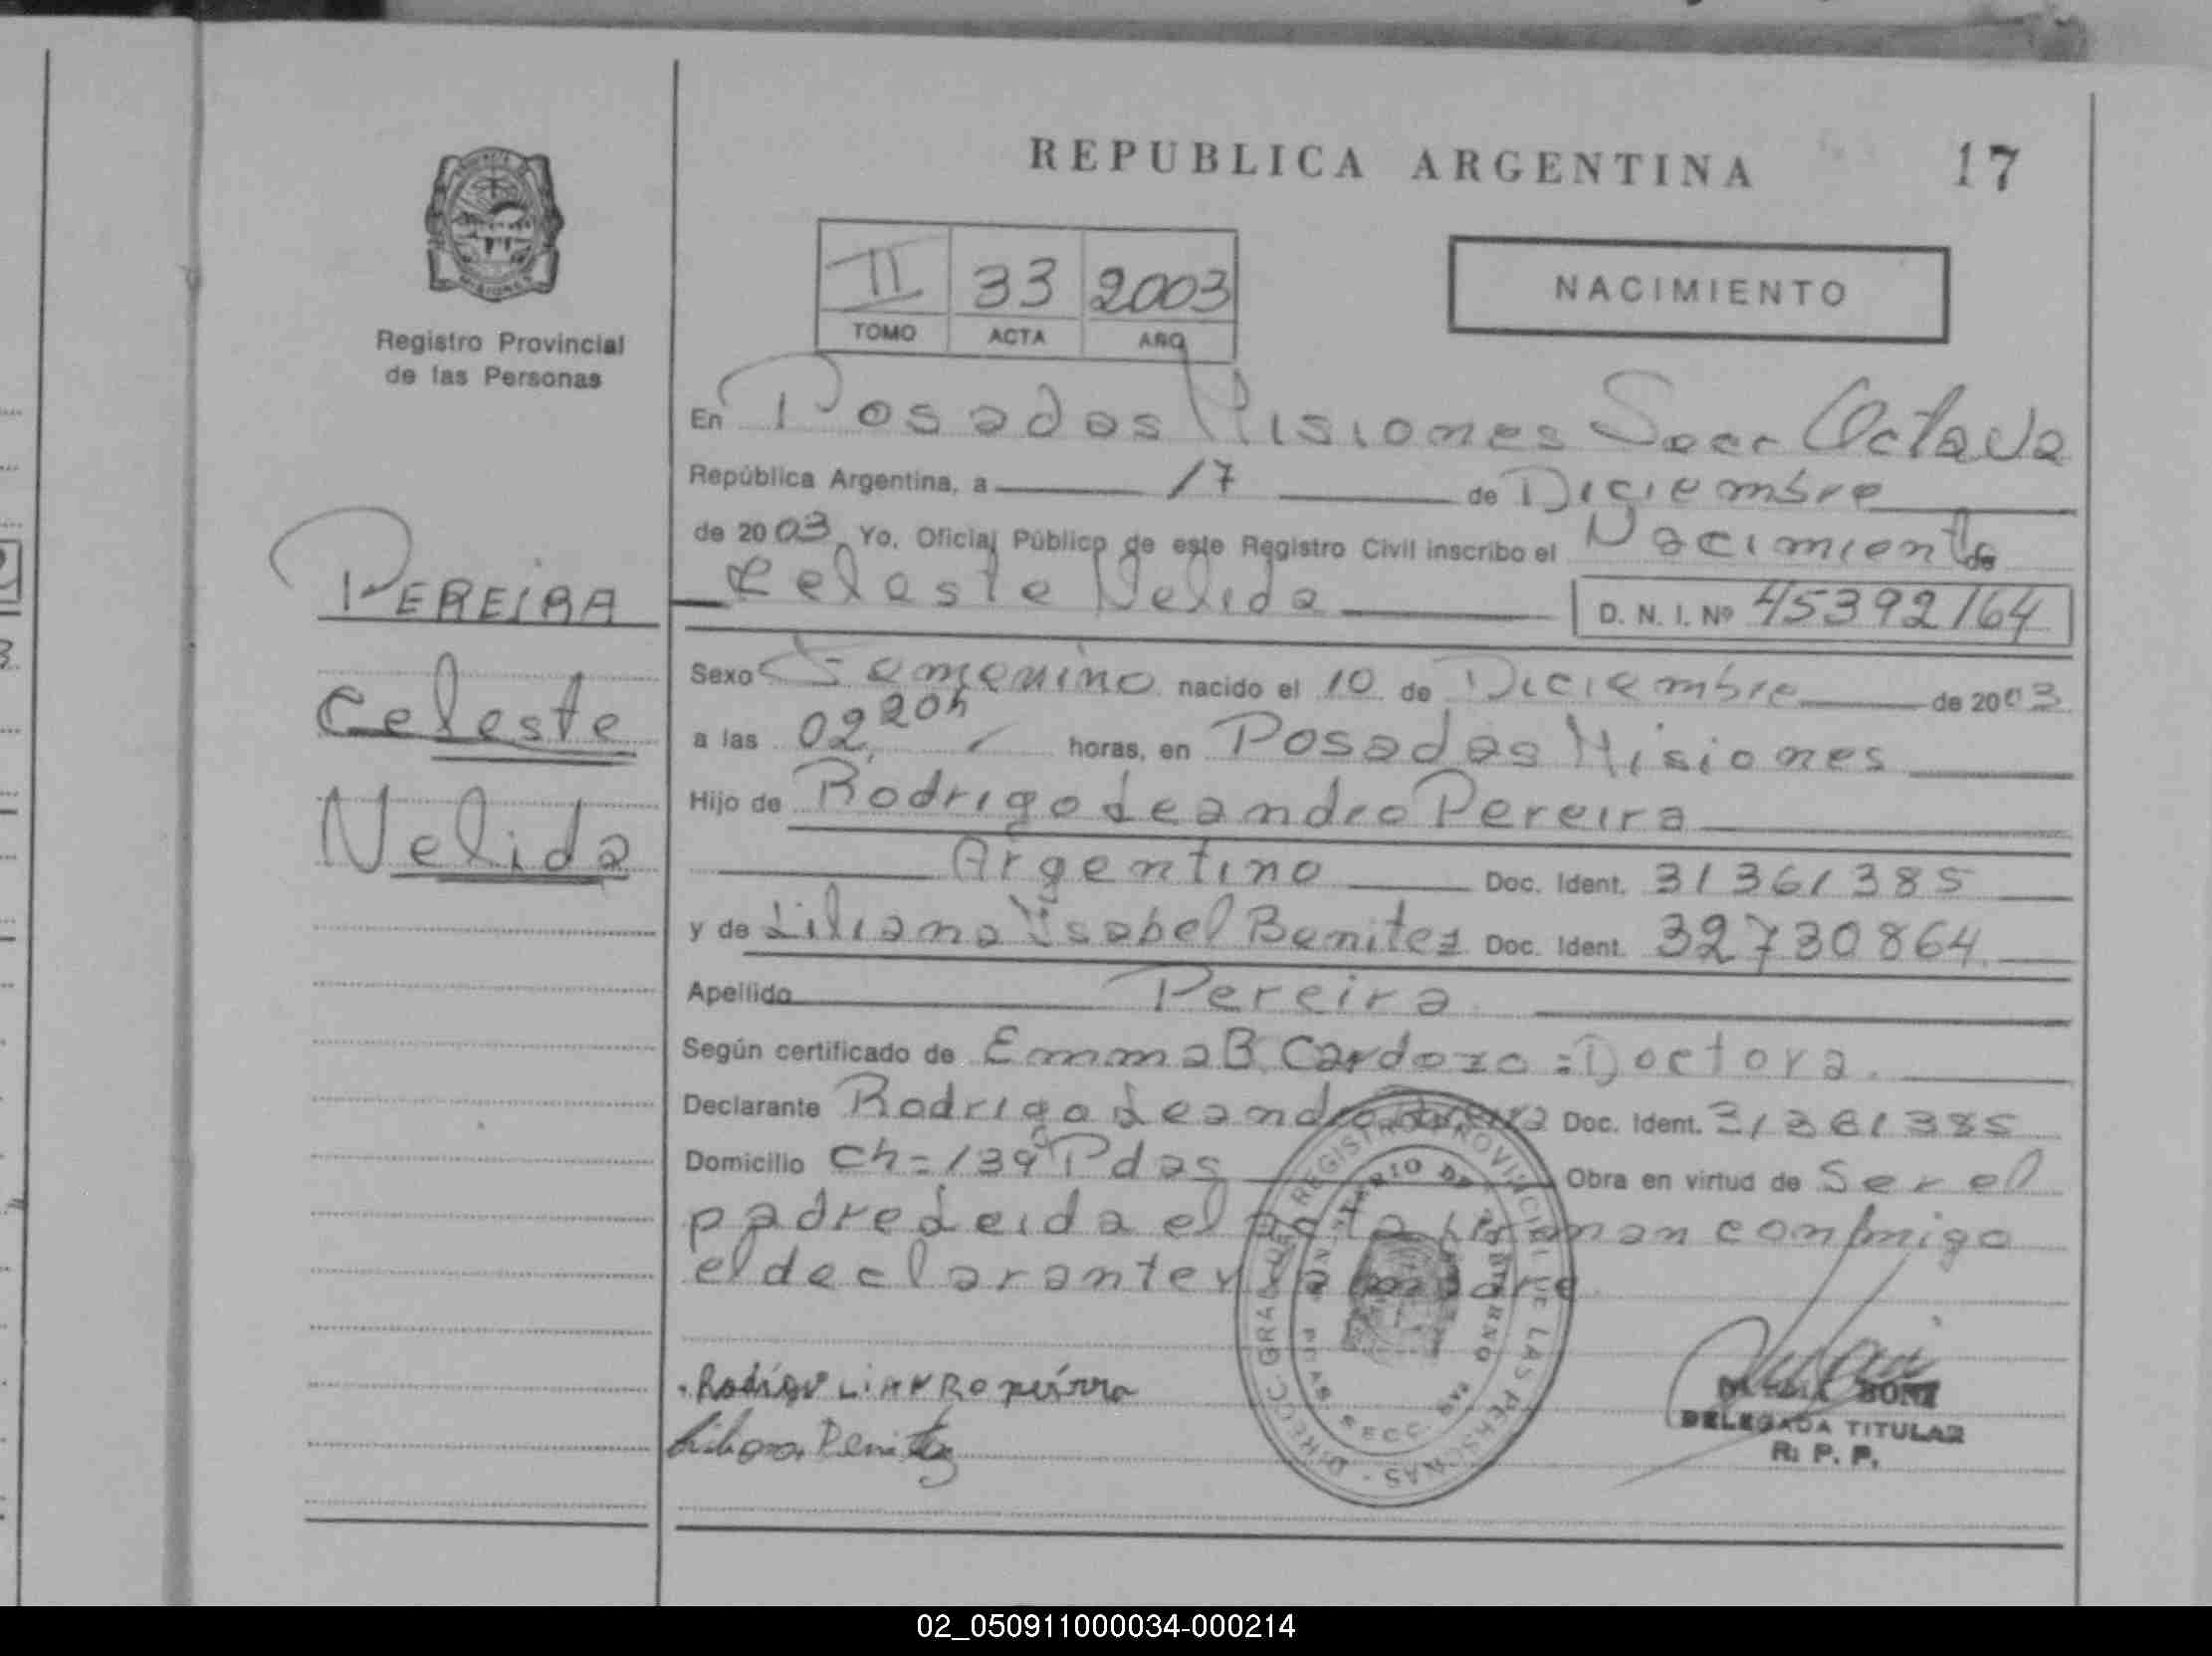 REPUBLICA ARGENTINA
17
MISIONES
Registro Provincial
de las Personas
II 33 2003
TOMO ACTA AÑO
NACIMIENTO
En Posadas Misiones Secc Octava
República Argentina, a 17 de Diciembre
de 2003 Yo, Oficial Público de este Registro Civil inscribo el Nacimiento de
Celeste Nelida D. N. I. Nº 45392164
PEREIRA
Celeste
Nelida
Sexo Femenino nacido el 10 de Diciembre de 2003
a las 02,20h horas, en Posadas Misiones
Hijo de Rodrigo Leandro Pereira
Argentino Doc. Ident. 31361385
y de Liliana Isabel Benitez Doc. Ident. 32730864
Apellido Pereira
Según certificado de Emma B. Cardozo = Doctora.
Declarante Rodrigo Leandro Pereira Doc. Ident. 31361385
Domicilio Ch = 139 Pdas Obra en virtud de Ser el
padre Leida el acta firman conmigo
el declarante y la madre
DIRECC. GRAL. DE REGISTRO PROVINCIAL DE LAS PERSONAS
SECC.
Benitez
DELEGADA TITULAR
R. P. P.
02_050911000034-000214